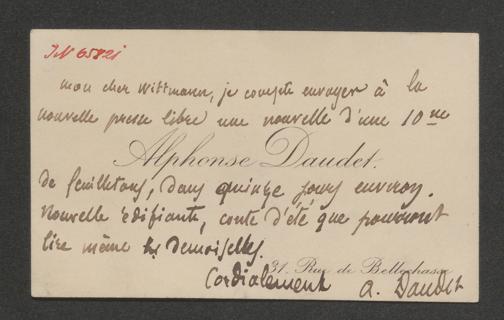 IN 65821
mon cher Wittmann, je compte envoyer à la
nouvelle presse libre une nouvelle d'une 10ne
Alphonse Daudet.
de feuilletons, dans quinze jours environ.
Nouvelle édifiante, conte d'été que pourront
lire même les Demoiselles.
31. Rue de Bellechasse
Cordialement A. Daudet